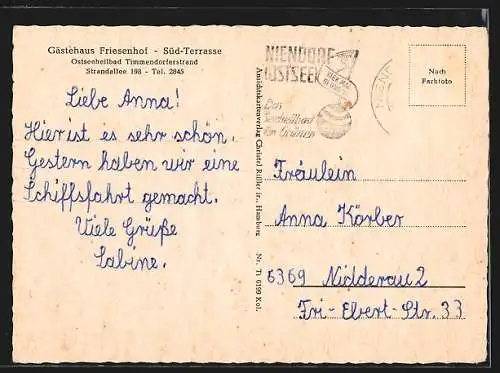 Gästehaus Friesenhof - Süd-Terrasse
Ostseeheilbad Timmendorferstrand
Strandallee 198 - Tel. 2845
Liebe Anna!
Hier ist es sehr schön.
Gestern haben wir eine
Schiffsfahrt gemacht.
Viele Grüße
Sabine.
Ansichtskartenverlag Christel Rüßler jr., Hamburg
Nr. Ti 0199 Kol.
NIENDORF
OSTSEE
Das
Seeheilbad
im Grünen
NIEN
Nach
Farbfoto
Fräulein
Anna Körber
6369 Nidderau 2
Fri-Ebert-Str. 33